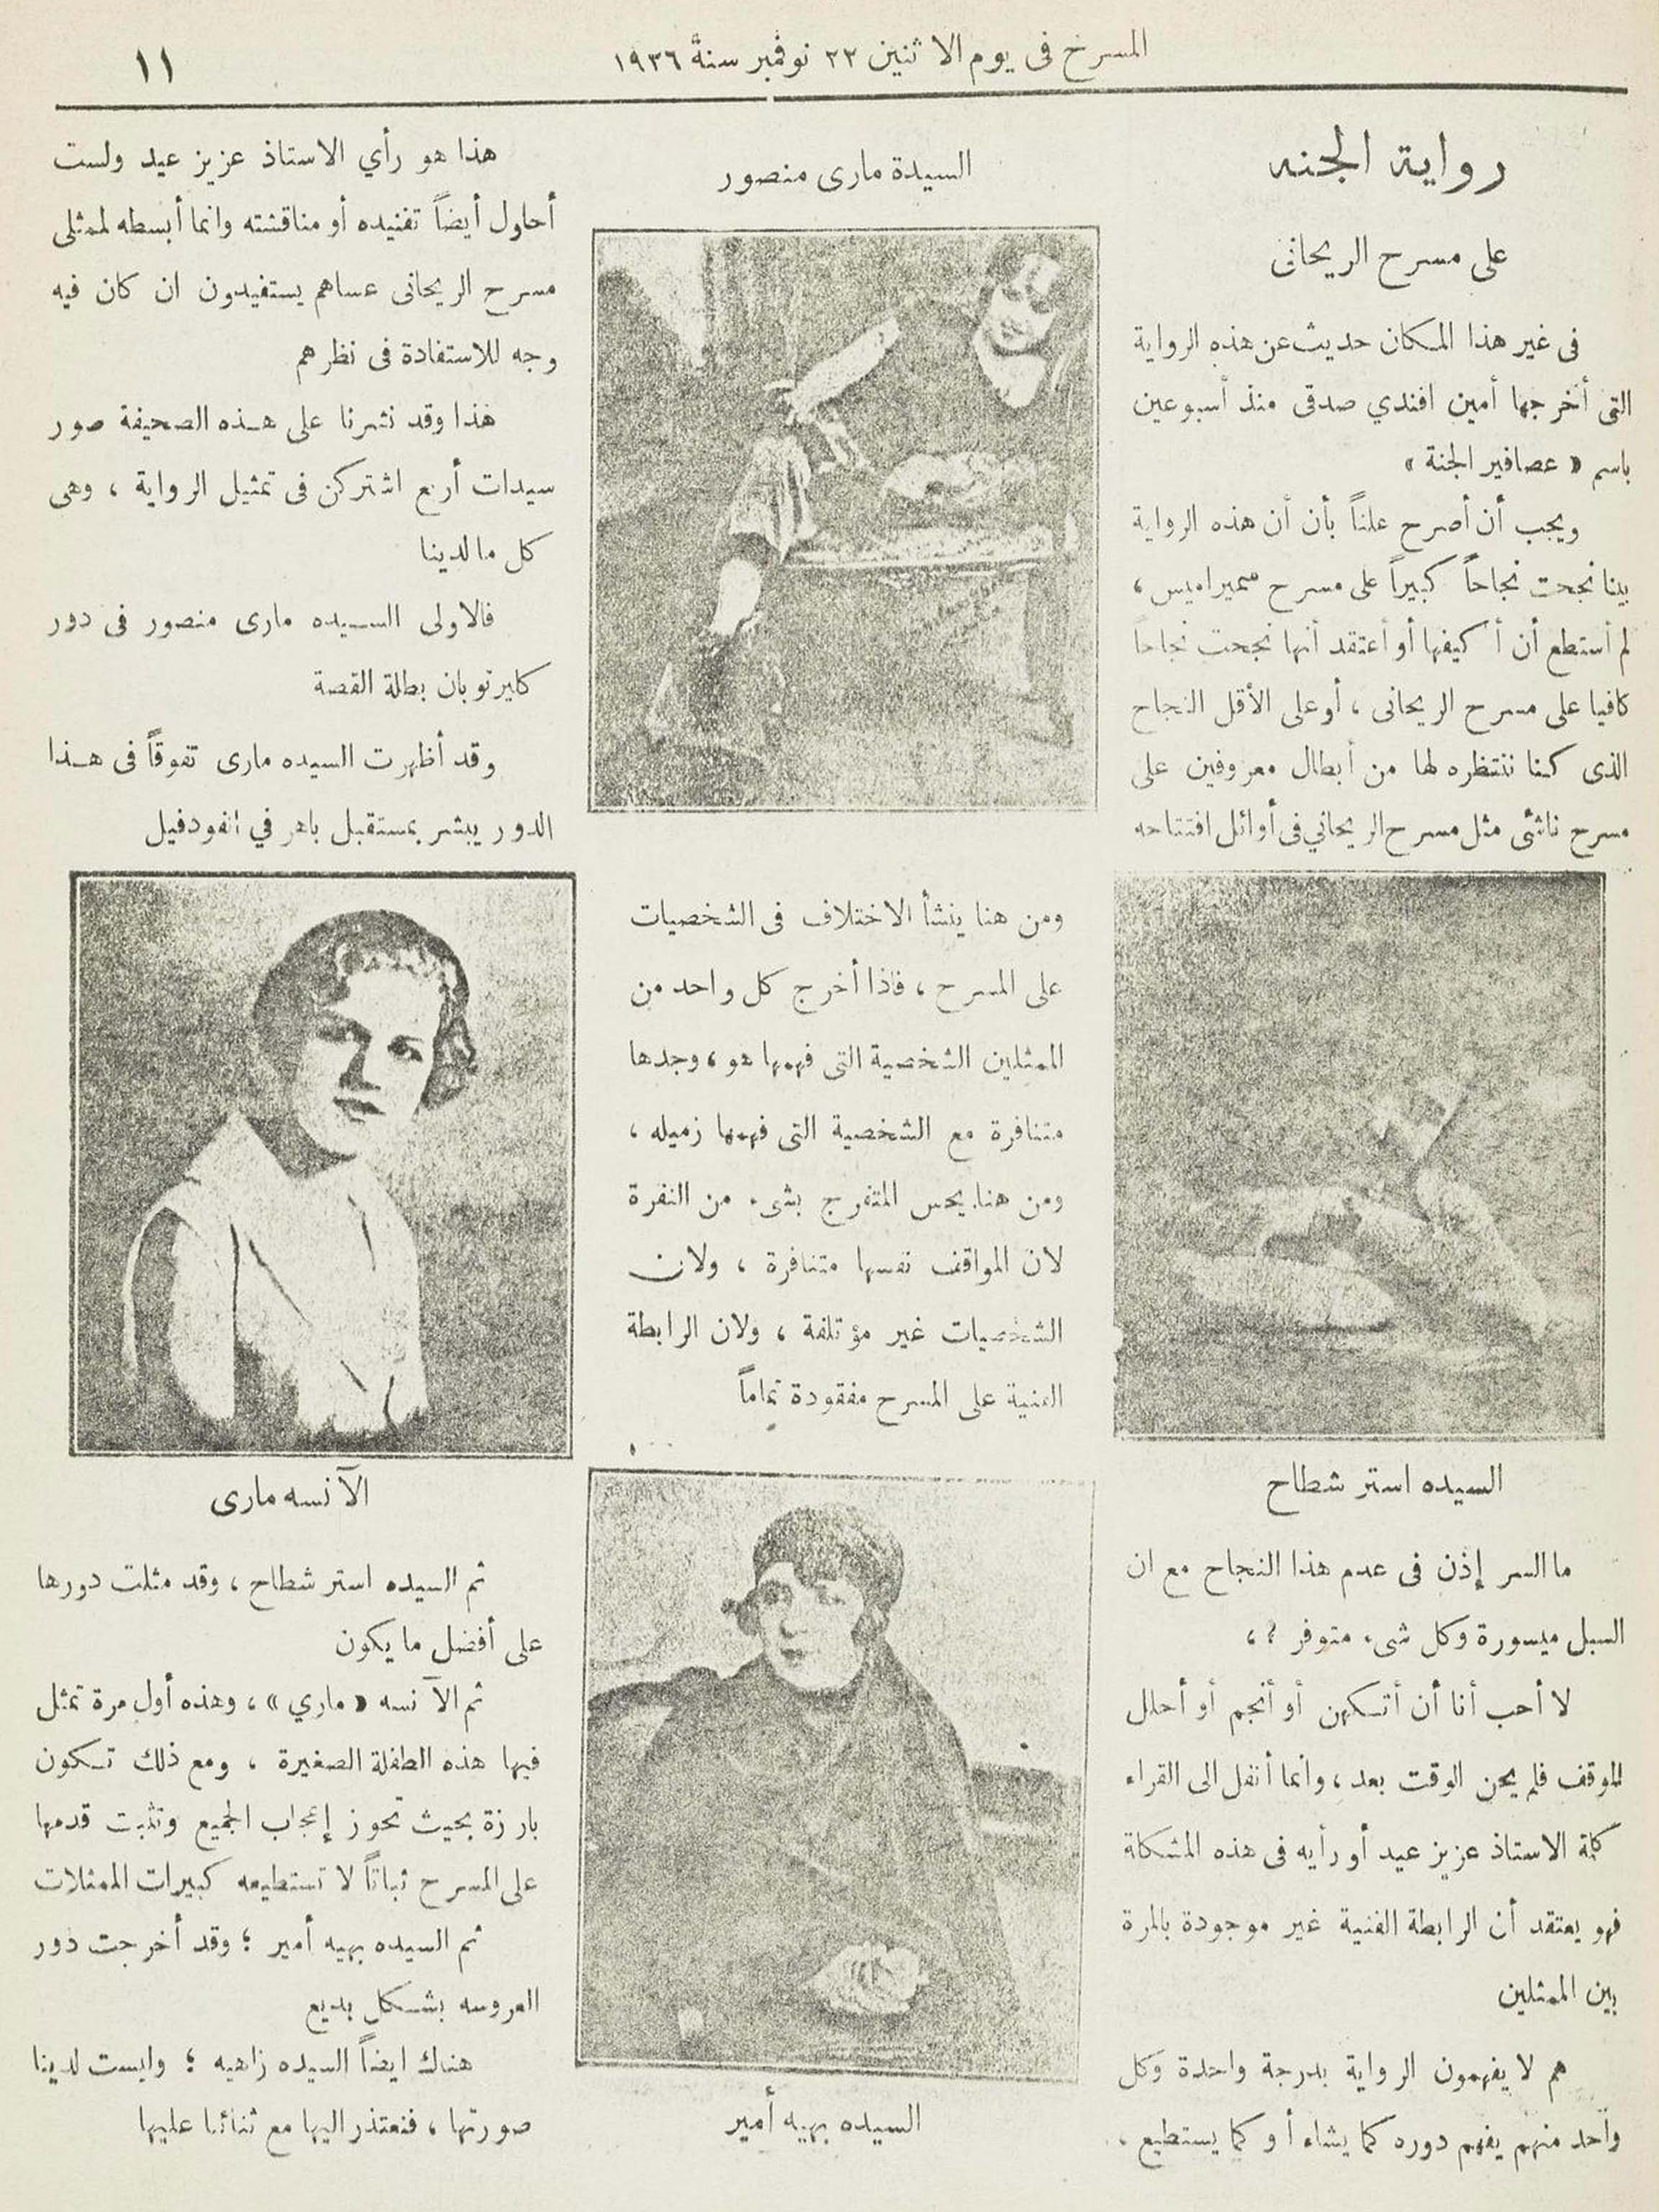 المسرح فى يوم الاثنين ٢٢ نوفمبر سنة ١٩٢٦
١١
رواية الجنه
على مسرح الريحانى
فى غير هذا المكان حديث عن هذه الرواية
التى أخرجها أمين افندي صدقى منذ أسبوعين
باسم « عصافير الجنة »
ويجب أن أصرح علناً بأن أن هذه الرواية
بينا نجحت نجاحاً كبيراً على مسرح سميراميس ،
لم أستطع أن أكيفها أو أعتقد أنها نجحت نجاحا
كافيا على مسرح الريحانى ، أو على الأقل النجاح
الذى كنا ننتظره لها من أبطال معروفين على
مسرح ناشئ مثل مسرح الريحاني فى أوائل افتتاحه
السيده استر شطاح
ما السر إذن فى عدم هذا النجاح مع ان
السبل ميسورة وكل شىء متوفر ؟ ،
لا أحب أنا أن أتكهن أو أنجم أو أحلل
الموقف فلم يحن الوقت بعد ، وانما أنقل الى القراء
كلمة الاستاذ عزيز عيد أو رأيه فى هذه المشكلة
فهو يعتقد أن الرابطة الفنية غير موجودة بالمرة
بين الممثلين
هم لا يفهمون الرواية بدرجة واحدة وكل
واحد منهم يفهم دوره كما يشاء أو كما يستطيع ،
السيدة مارى منصور
ومن هنا ينشأ الاختلاف فى الشخصيات
على المسرح ، فاذا أخرج كل واحد من
الممثلين الشخصية التى فهمها هو ، وجدها
متنافرة مع الشخصية التى فهمها زميله ،
ومن هنا يحس المتفرج بشىء من النفرة
لان المواقف نفسها متنافرة ، ولان
الشخصيات غير مؤتلفة ، ولان الرابطة
الفنية على المسرح مفقودة تماماً
السيده بهيه أمير
هذا هو رأي الاستاذ عزيز عيد ولست
أحاول أيضاً تفنيده أو مناقشته وانما أبسطه لممثلى
مسرح الريحانى عساهم يستفيدون ان كان فيه
وجه للاستفادة فى نظرهم
هذا وقد نشرنا على هذه الصحيفة صور
سيدات أربع اشتركن فى تمثيل الرواية ، وهى
كل ما لدينا
فالاولى السيده مارى منصور فى دور
كايرتوبان بطلة القصة
وقد أظهرت السيده مارى تفوقاً فى هذا
الدور يبشر بمستقبل باهر في الفودفيل
الآنسه مارى
ثم السيده استر شطاح ، وقد مثلت دورها
على أفضل ما يكون
ثم الآنسه « ماري » ، وهذه أول مرة تمثل
فيها هذه الطفلة الصغيرة ، ومع ذلك تكون
بارزة بحيث تحوز إعجاب الجميع وتثبت قدمها
على المسرح ثباتاً لا تستطيعه كبيرات الممثلات
ثم السيده بهيه أمير ؛ وقد أخرجت دور
العروسه بشكل بديع
هناك ايضاً السيده زاهيه ؛ وليست لدينا
صورتها ، فنعتذر اليها مع ثنائنا عليها